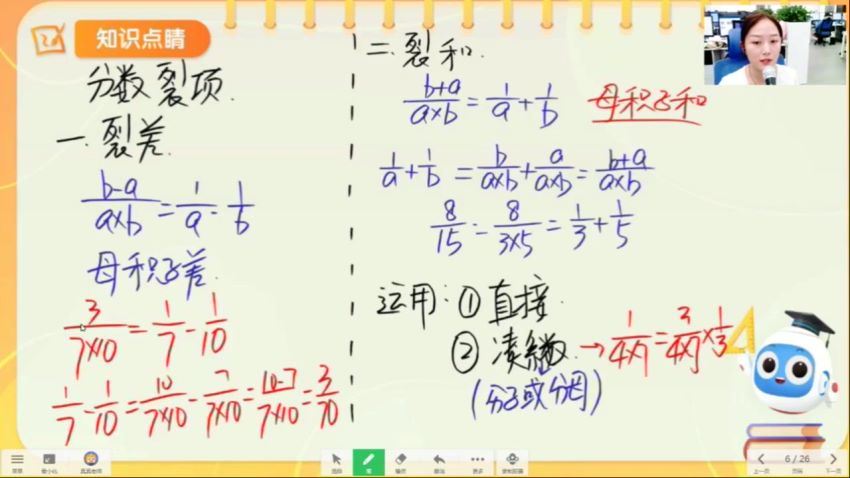 知识点睛
分数裂项.
一.裂差.
b-a/a×b=1/a-1/b
母积子差.
3/7×10=1/7-1/10
1/7-1/10=10/7×10-7/7×10=10-7/7×10=3/70
二.裂和.
b+a/a×b=1/a+1/b 母积子和
1/a+1/b=b/a×b+a/a×b=b+a/a×b
8/15=8/3×5=1/3+1/5
运用:①直接.
②凑系数.→1/4×7=3/4×7×1/3
(分子或分母)
菜单
选择
笔
橡皮
撤销
更多
上一页
6 / 26
下一页